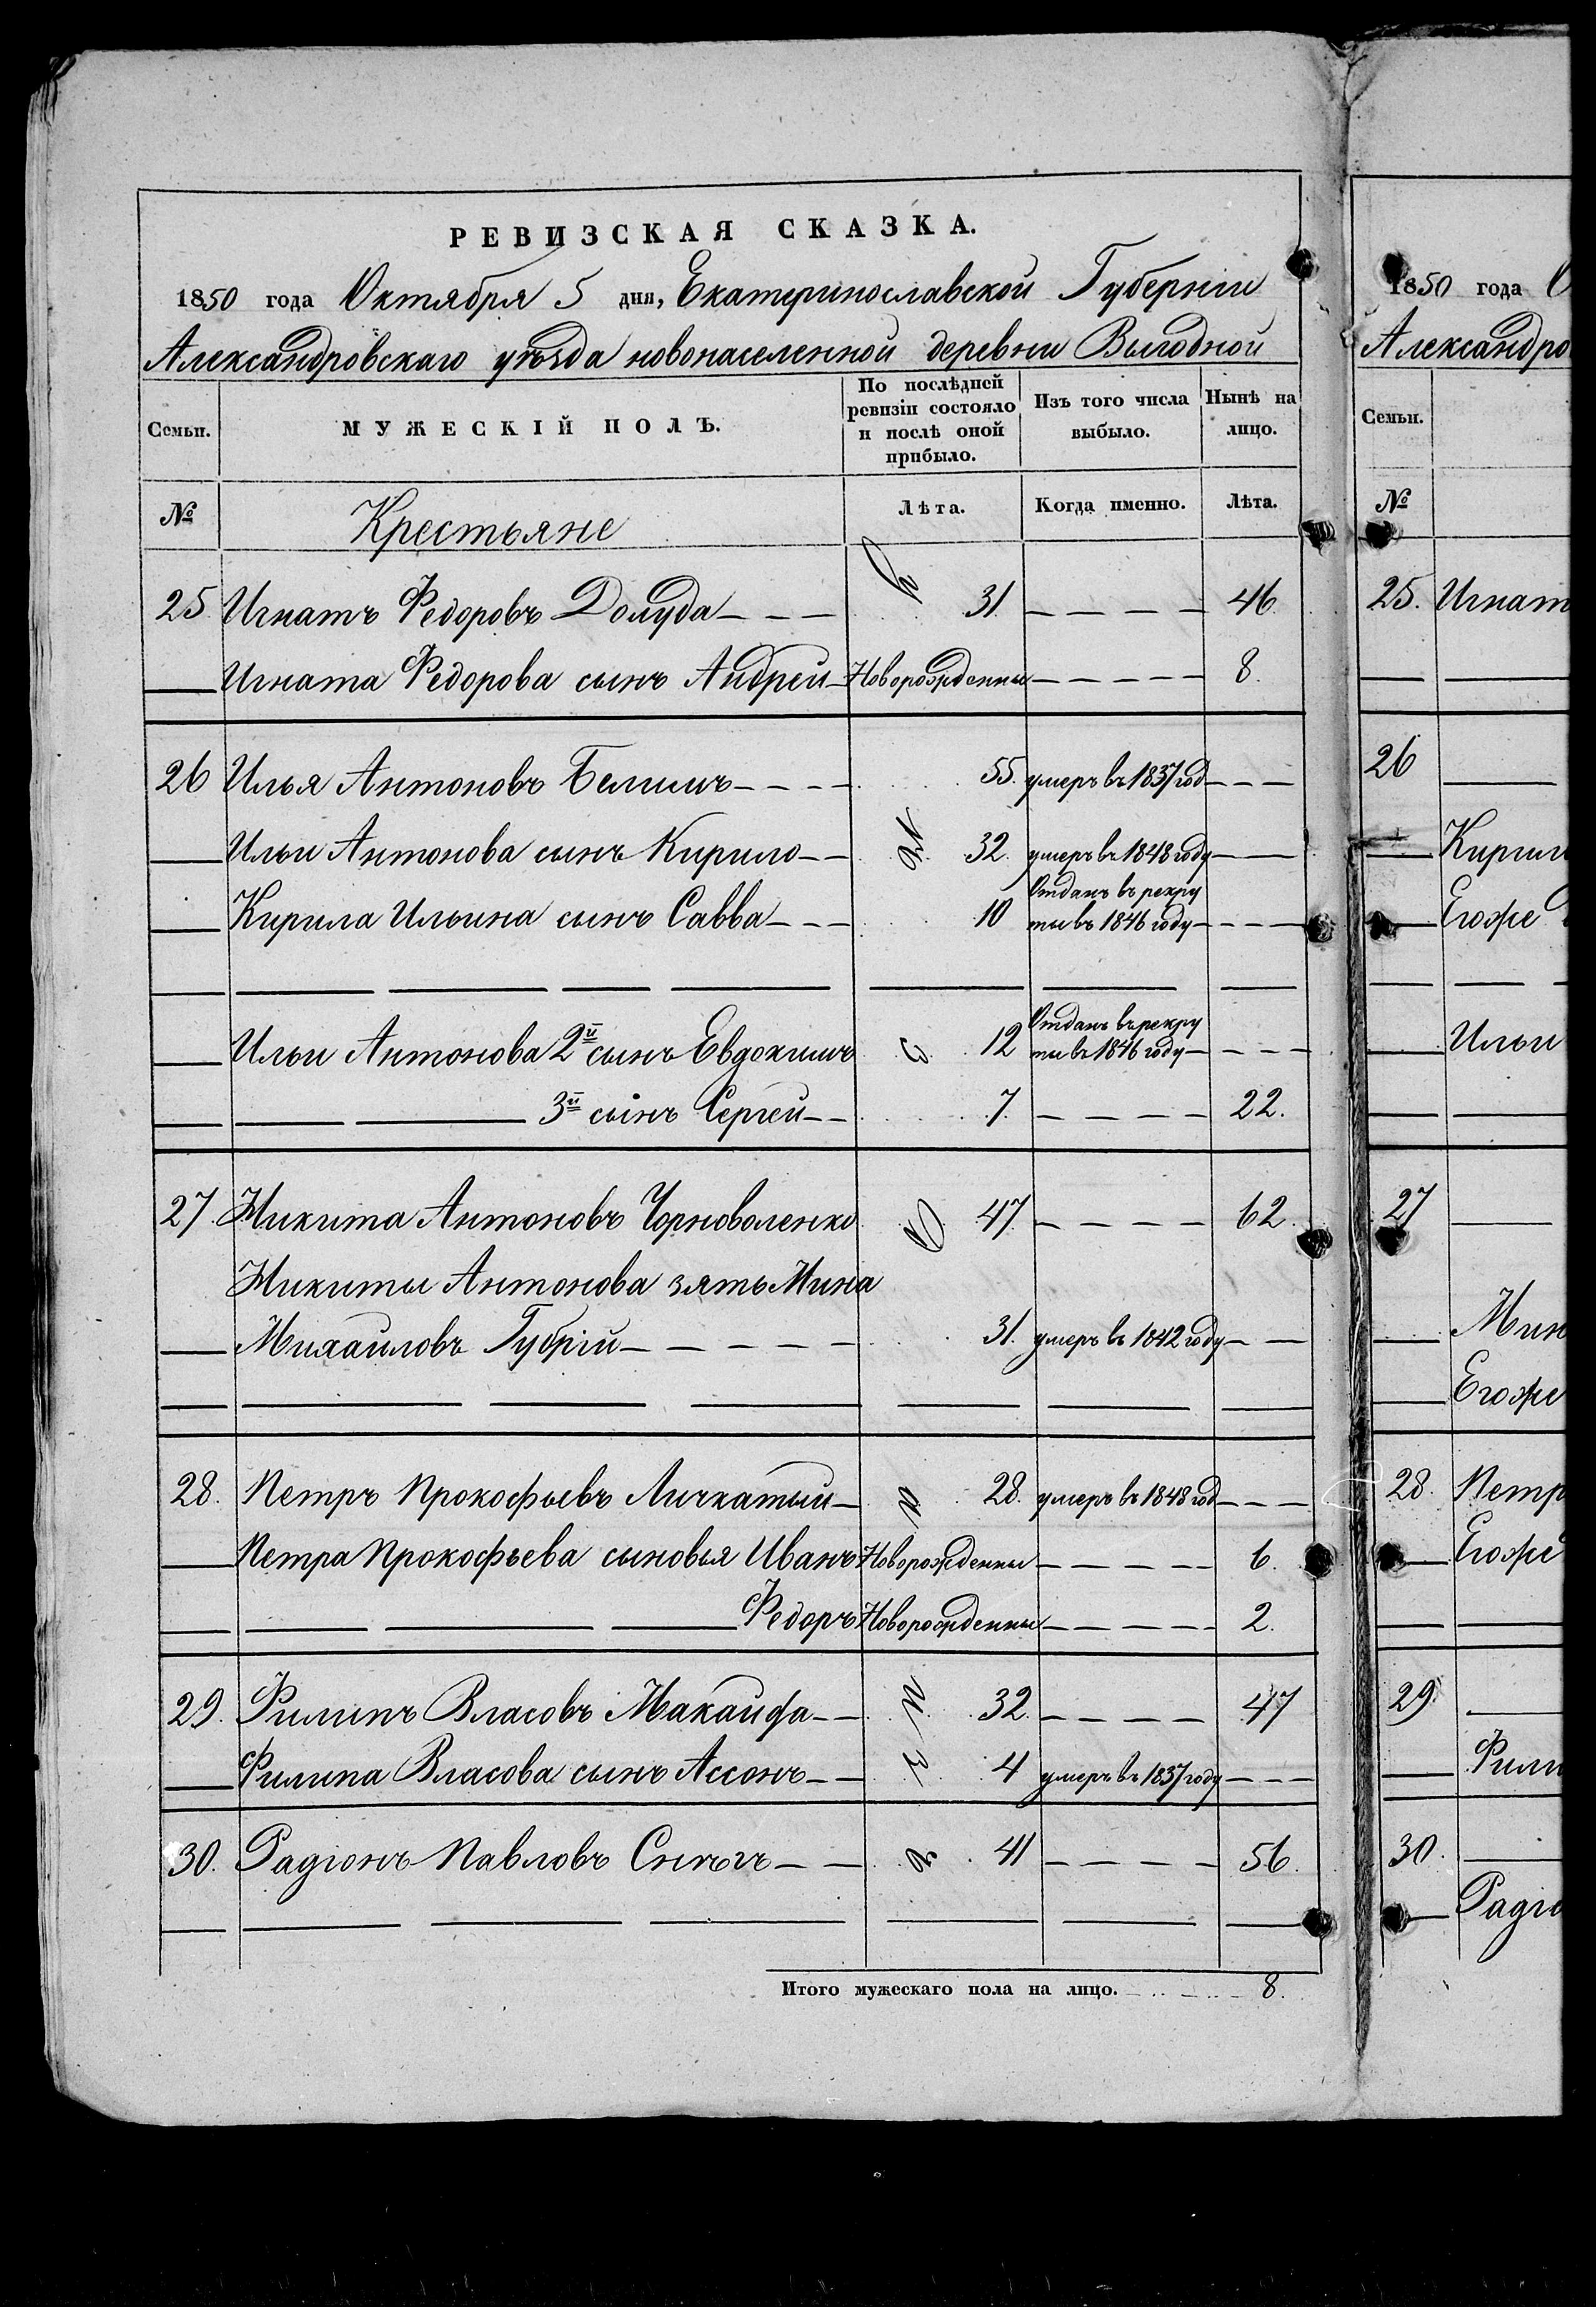 РЕВИЗСКАЯ СКАЗКА.
1850 года Октября 5 дня, Екатеринославской Губерніи
Александровскаго уѣзда новонаселенной деревни Выгодной
Семьи. МУЖЕСКІЙ ПОЛЪ. По послѣдней ревизіи состояло и послѣ оной прибыло. Изъ того числа выбыло. Нынѣ на лицо.
№ Крестьяне Лѣта. Когда именно. Лѣта.
25 Игнатъ Федоровъ Долуда 31. 46
Игната Федорова сынъ Андрей Новорожденны 8.
26 Илья Антоновъ 55. умеръ въ 1837 год
Ильи Антонова сынъ Кирило 32. умеръ въ 1848 году
Кирила Ильина сынъ Савва 10 Отданъ въ рекру
ты въ 1846 году
Ильи Антонова 2й сынъ Евдокимъ 12 Отданъ въ рекру
ты въ 1846 году
3й сынъ Сергей 7. 22.
27. Никита Антоновъ Чорноволенко 47. 62.
Никиты Антонова зять Мина
Михаиловъ Губрій 31. умеръ въ 1842 году
28. Петръ Прокофьевъ Личкатый 28. умеръ въ 1848 год
Петра Прокофьева сыновья Иванъ Новорожденны 6.
Федоръ Новорожденны 2.
29. Филипъ Власовъ 32. 47
Филипа Власова сынъ Ассонъ 4 умеръ въ 1837 году
30. Радіонъ Павловъ Снѣгъ 41 56.
Итого мужескаго пола на лицо. 8.
1850 года О
Александро
Семьи.
№
25. Игнат
26
Кирил
Егоже
Ильи
27
Мин
Егоже
28. Петр
Егоже
29.
Фили
30.
Радіо